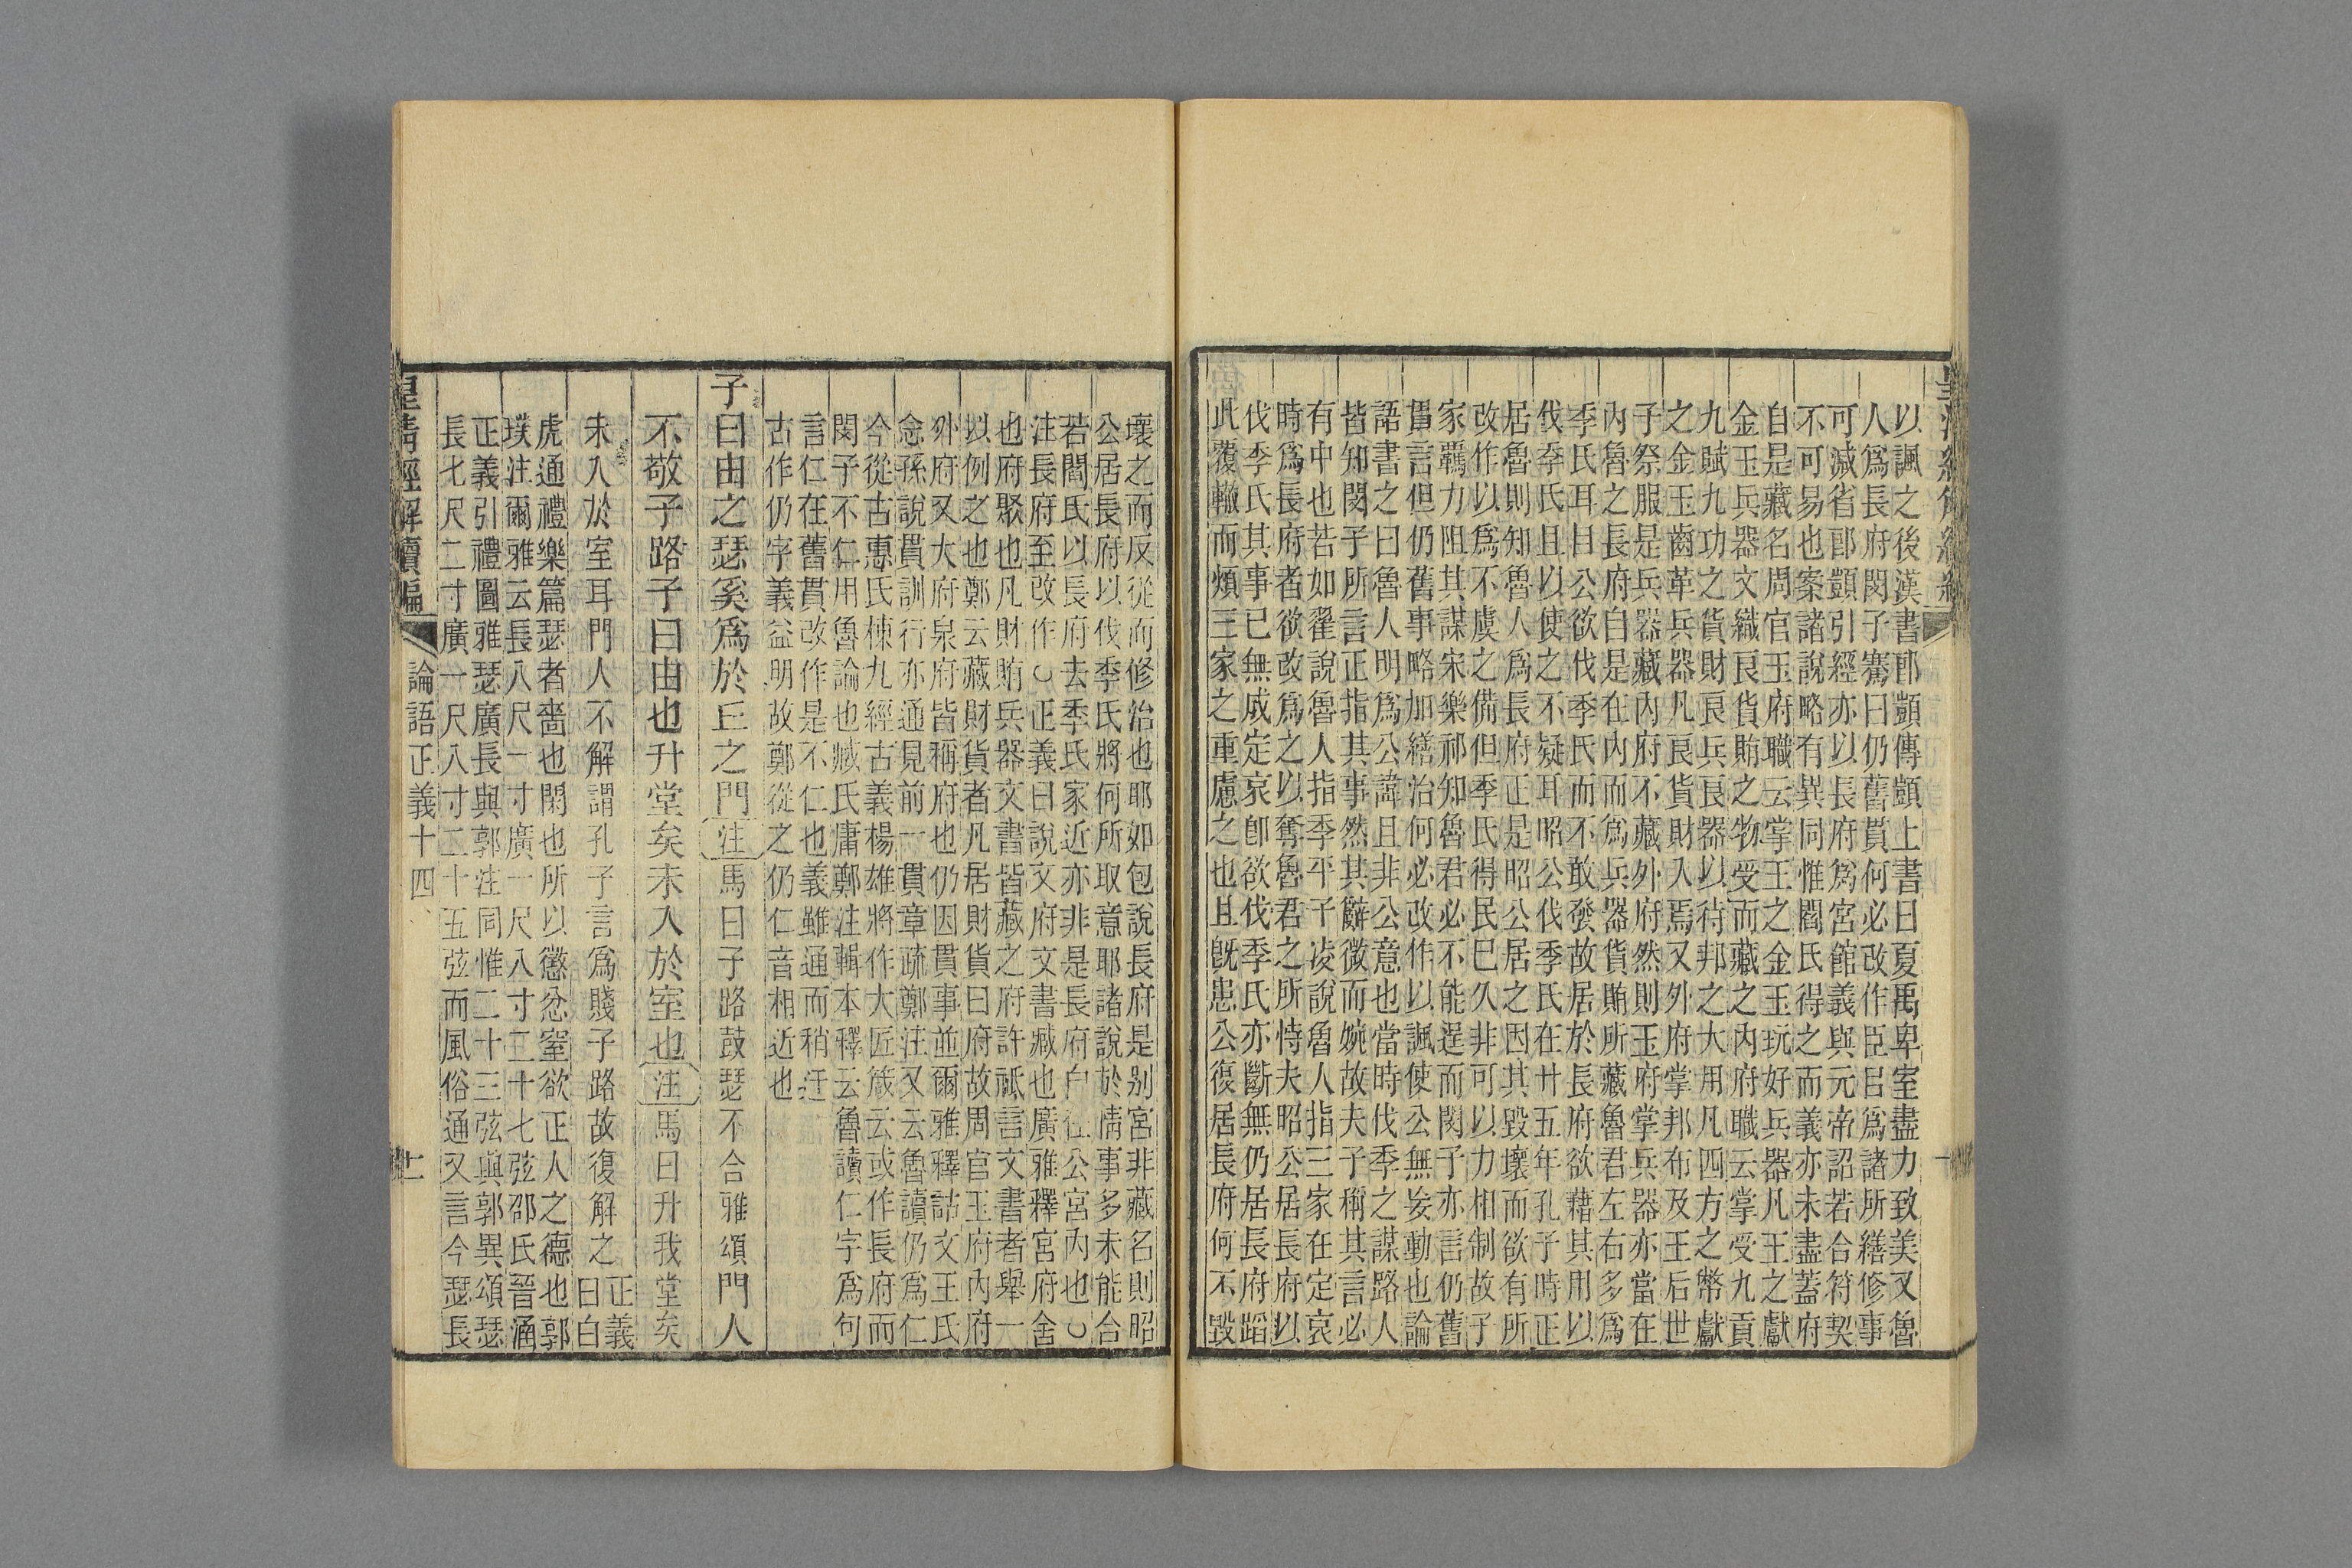 以諷之後漢書郎顗傳顗上書曰夏禹卑室盡力致美又魯
人爲長府閔子騫曰仍舊貫何必改作臣㠯爲諸所繕修事
可減省郎顗引經亦以長府爲宮館義與元帝詔若合符契
不可易也案諸說略有異同惟閻氏得之而義亦未盡蓋府
自是藏名周官玉府職云掌王之金玉玩好兵器凡王之獻
金玉兵器文織良貨賄之物受而藏之內府職云掌受九貢
九賦九功之貨財良兵良器以待邦之大用凡四方之幣獻
之金玉齒革兵器凡良貨財入焉又外府掌邦布及王后世
子祭服是兵器藏內府不藏外府然則玉府掌兵器亦當在
內魯之長府自是在內而爲兵器貨賄所藏魯君左右多爲
季氏耳目公欲伐季氏而不敢發故居於長府欲藉其用以
伐季氏且以使之不疑耳昭公伐季氏在廿五年孔子時正
居魯則知魯人爲長府正是昭公居之因其毀壞而欲有所
改作以爲不虞之備但季氏得民已久非可以力相制故子
家羈力阻其謀宋樂祁知魯君必不能逞而閔子亦言仍舊
貫言但仍舊事略加繕治何必改作以諷使公無妄動也論
語書之曰魯人明爲公諱且非公意也當時伐季之謀路人
皆知閔子所言正指其事然其辭微而婉故夫子稱其言必
有中也若如翟說魯人指季平子凌說魯人指三家在定哀
時爲長府者欲改爲之以奪魯君之所恃夫昭公居長府以
伐季氏其事已無成定哀卽欲伐季氏亦斷無仍居長府蹈
此覆轍而煩三家之重慮之也且旣患公復居長府何不毀
壞之而反從而修治也耶如包說長府是别宮非藏名則昭
公居長府以伐季氏將何所取意耶諸說於情事多未能合
若閻氏以長府去季氏家近亦非是長府自在公宮內也○
注長府至改作○正義曰說文府文書藏也廣雅釋宮府舍
也府聚也凡財賄兵器文書皆藏之府許祗言文書者舉一
以例之也鄭云藏財貨者凡居財貨曰府故周官玉府內府
外府又大府泉府皆稱府也仍因貫事並爾雅釋詁文王氏
念孫說貫訓行亦通見前一貫章疏鄭注又云魯讀仍爲仁
今從古惠氏棟九經古義楊雄將作大匠箴云或作長府而
閔子不仁用魯論也臧氏庸鄭注輯本釋云魯讀仁字爲句
言仁在舊貫改作是不仁也義雖通而稍迂
古作仍字義益明故鄭從之仍仁音相近也
子曰由之瑟奚爲於丘之門注馬曰子路鼓瑟不合雅頌門人
不敬子路子曰由也升堂矣未入於室也注馬曰升我堂矣
未入於室耳門人不解謂孔子言爲賤子路故復解之正義曰白
虎通禮樂篇瑟者嗇也閑也所以懲忿窒欲正人之德也郭
璞注爾雅云長八尺一寸廣一尺八寸二十七弦邵氏晉涵
正義引禮圖雅瑟廣長與郭注同惟二十三弦與郭異頌瑟
長七尺二寸廣一尺八寸二十五弦而風俗通又言今瑟長
皇清經解續編
論語正義十四